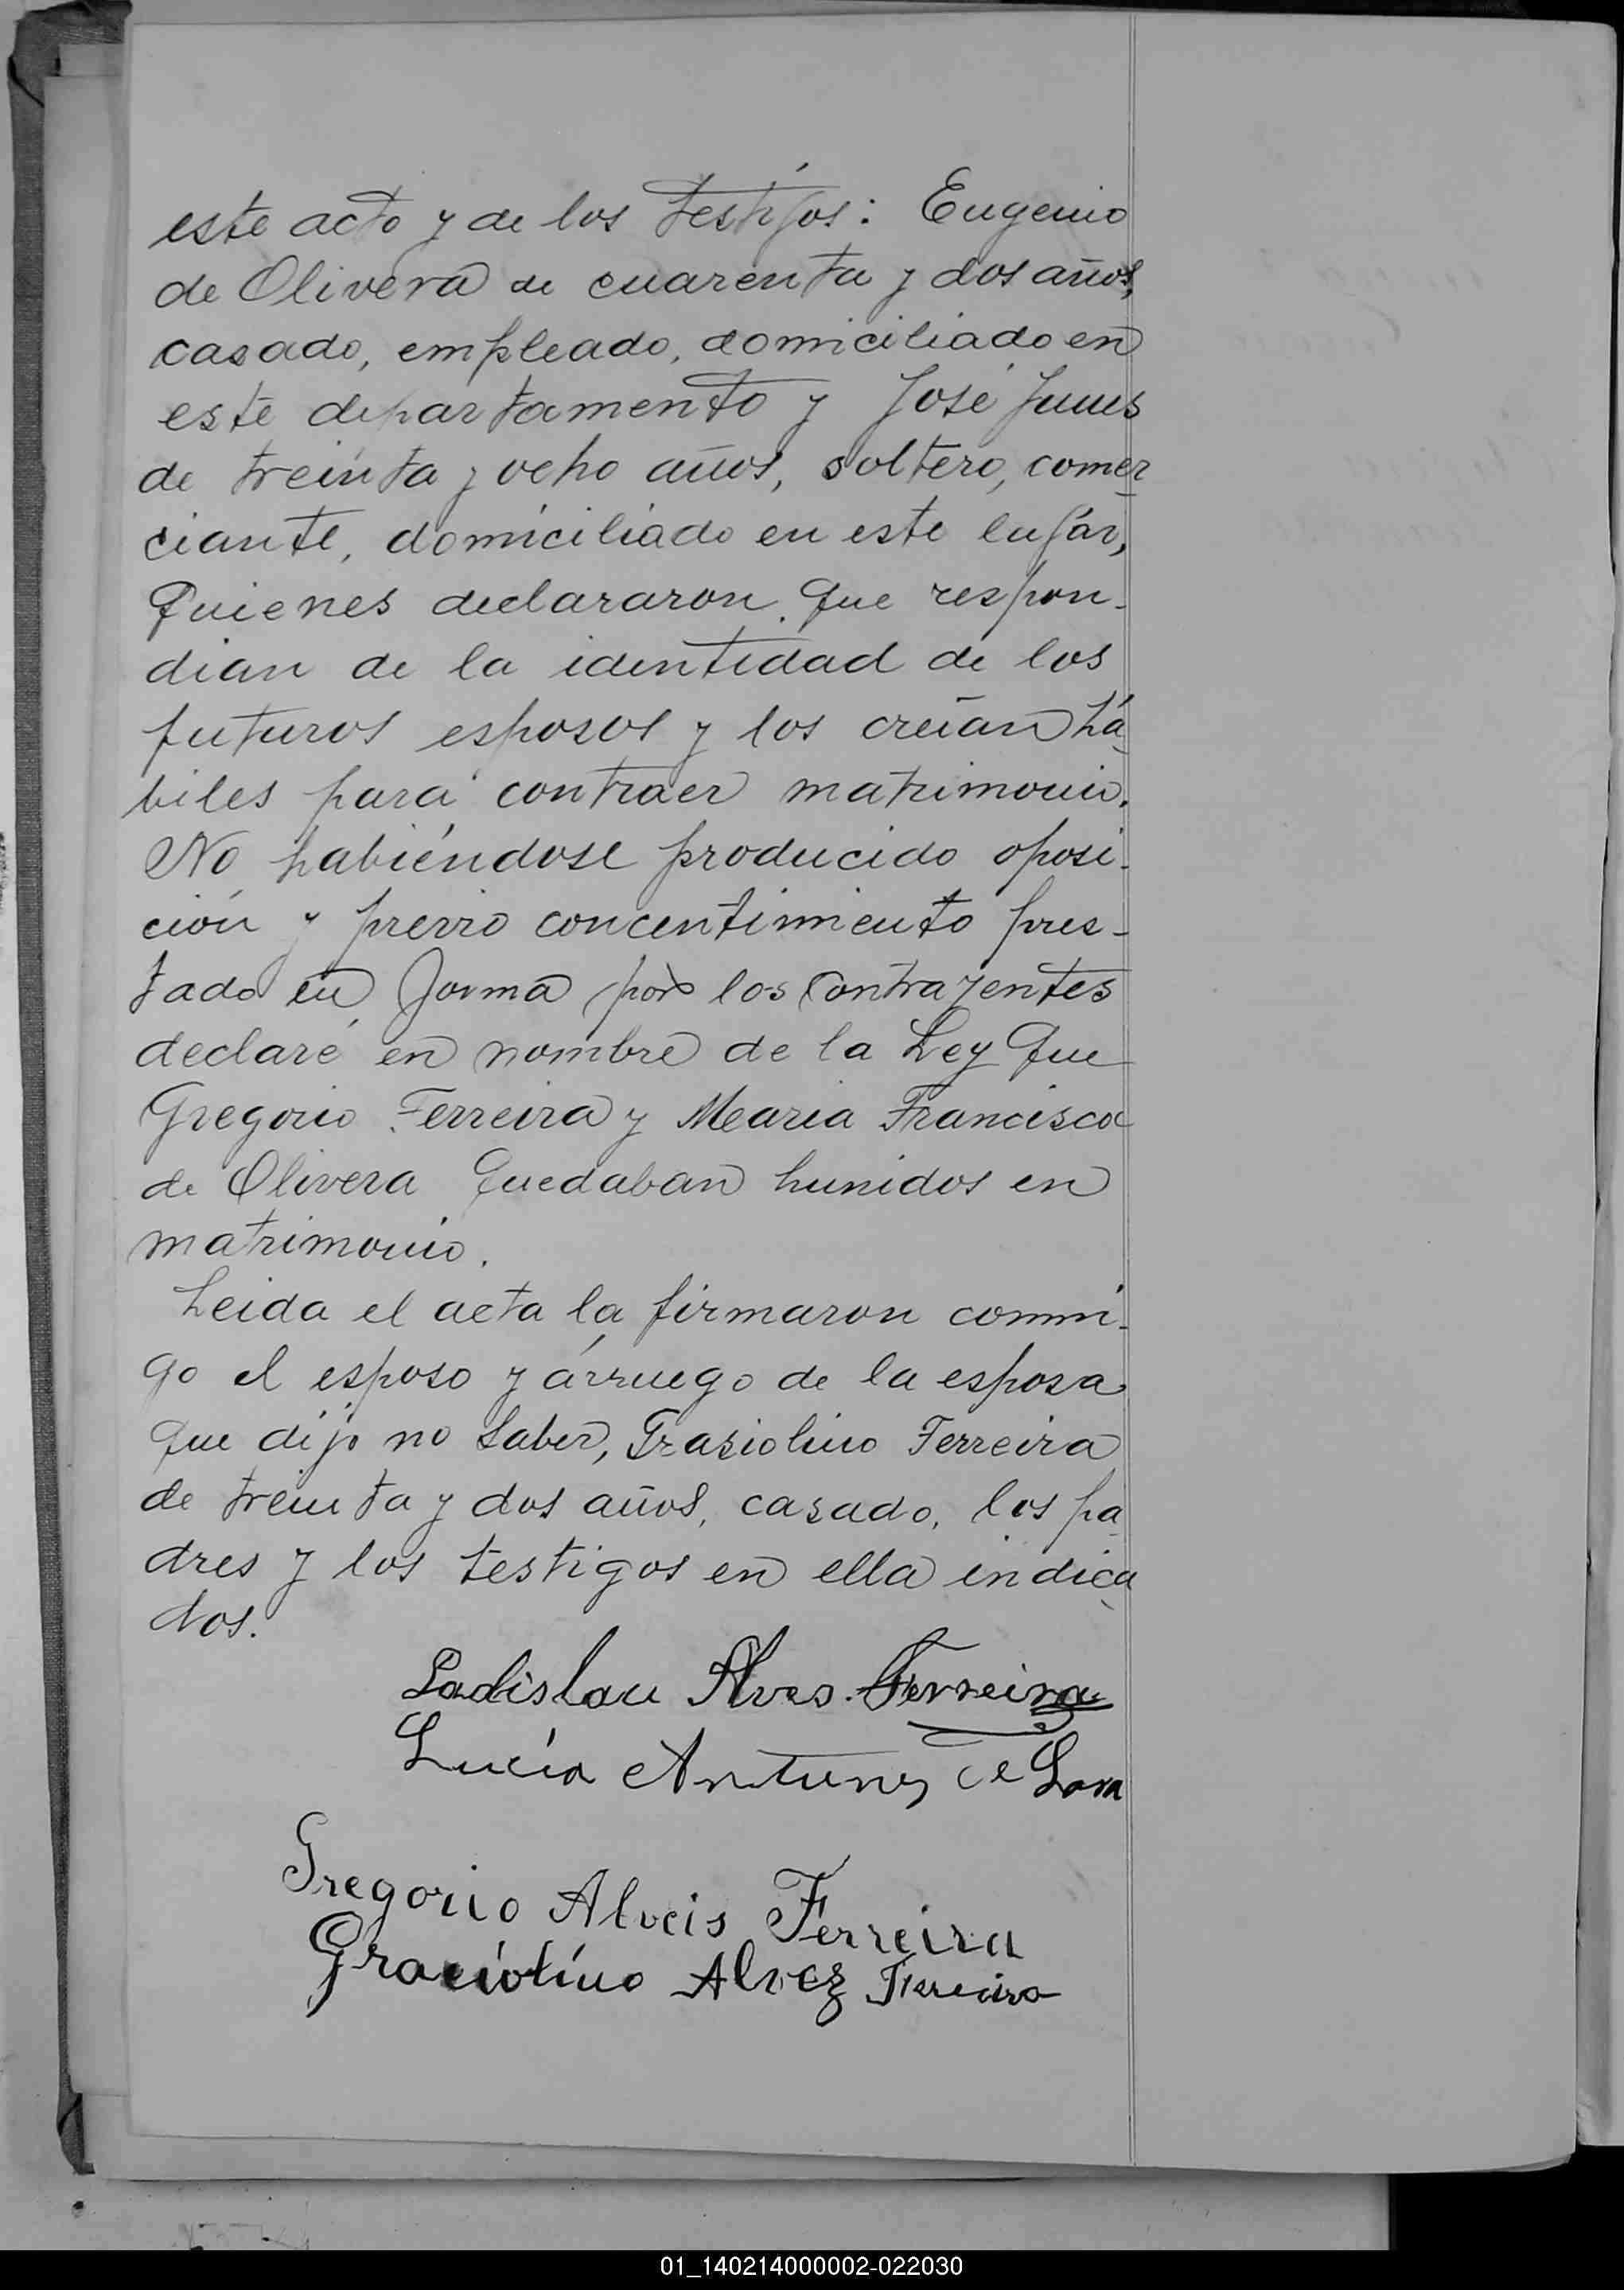 este acto y de los testigos: Eugenio
de Olivera de cuarenta y dos años,
casado, empleado, domiciliado en
este departamento y José
de treinta y ocho años, soltero, comer
ciante, domiciliado en este lugar,
Quienes declararon que respon-
dian de la identidad de los
futuros esposos y los creían há
biles para contraer matrimonio.
No habiéndose producido oposi-
ción y previo concentimiento pres-
tado en forma por los contrayentes
declaré en nombre de la Ley que
Gregorio Ferreira y Maria Francisca
de Olivera quedaban hunidos en
matrimonio.
Leida el acta la firmaron conmi-
go el esposo y árruego de la esposa
que dijo no saber, Grasiolino Ferreira
de treinta y dos años, casado, los pa
dres y los testigos en ella indica
dos.
Ladislau Alves Ferreira
Lucía Antunes de
Gregorio Alveis Ferreira
Graciolino Alvez Ferreira
01_140214000002-022030